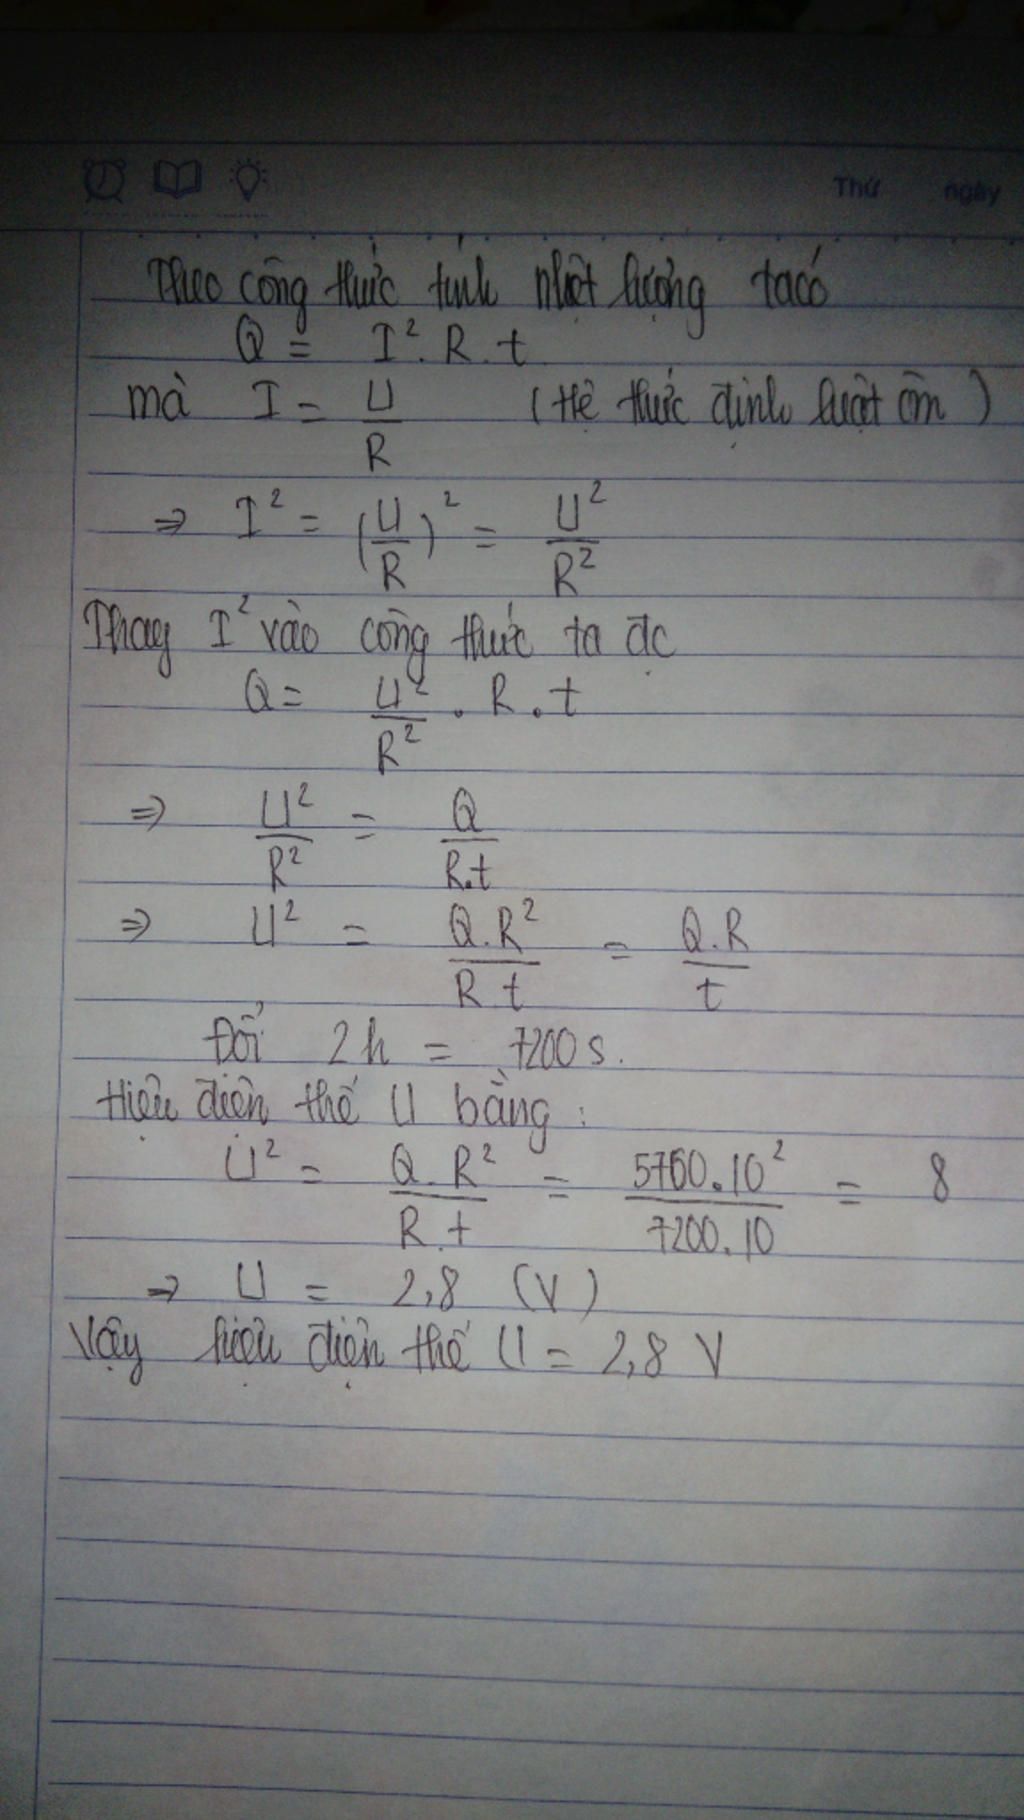 Thứ ngày
Theo công thức tính nhiệt lượng ta có
Q = I². R. t
mà I = U/R (Hệ thức định luật ôm)
⇒ I² = (U/R)² = U²/R²
Thay I² vào công thức ta đc
Q = U²/R² . R . t
⇒ U²/R² = Q/R.t
⇒ U² = Q.R²/R t = Q.R/t
Đổi 2h = 7200s.
Hiệu điện thế U bằng:
U² = Q.R²/R.t = 5760.10²/7200.10 = 8
⇒ U = 2,8 (V)
Vậy hiệu điện thế U = 2,8 V